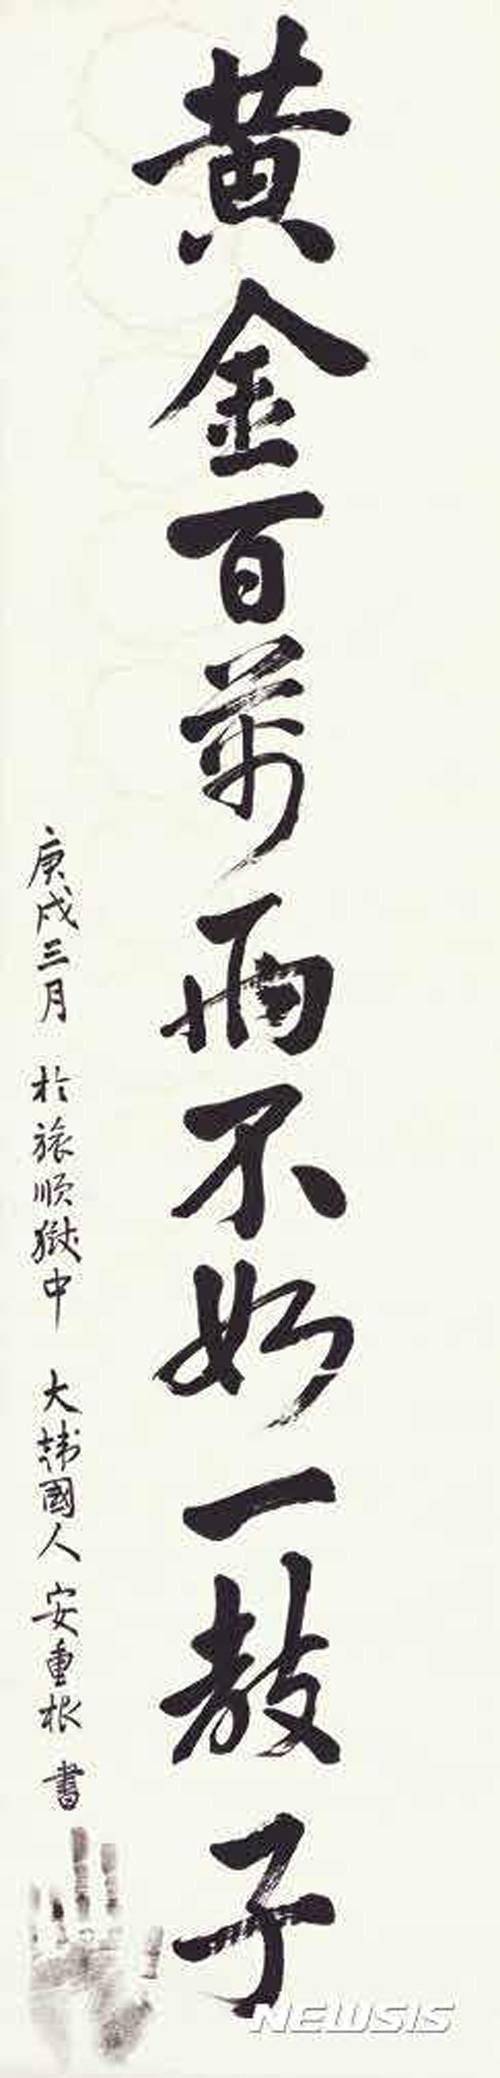 黃金百萬兩不如一敎子
庚戌三月 於旅順獄中 大韓國人 安重根 書
NEWSIS